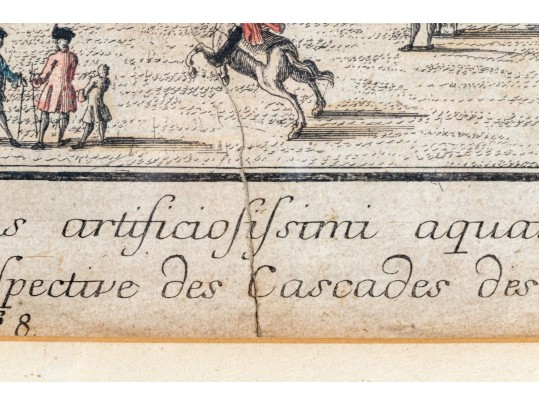 s artificiosissimi aqua
spective des Cascades des
8.